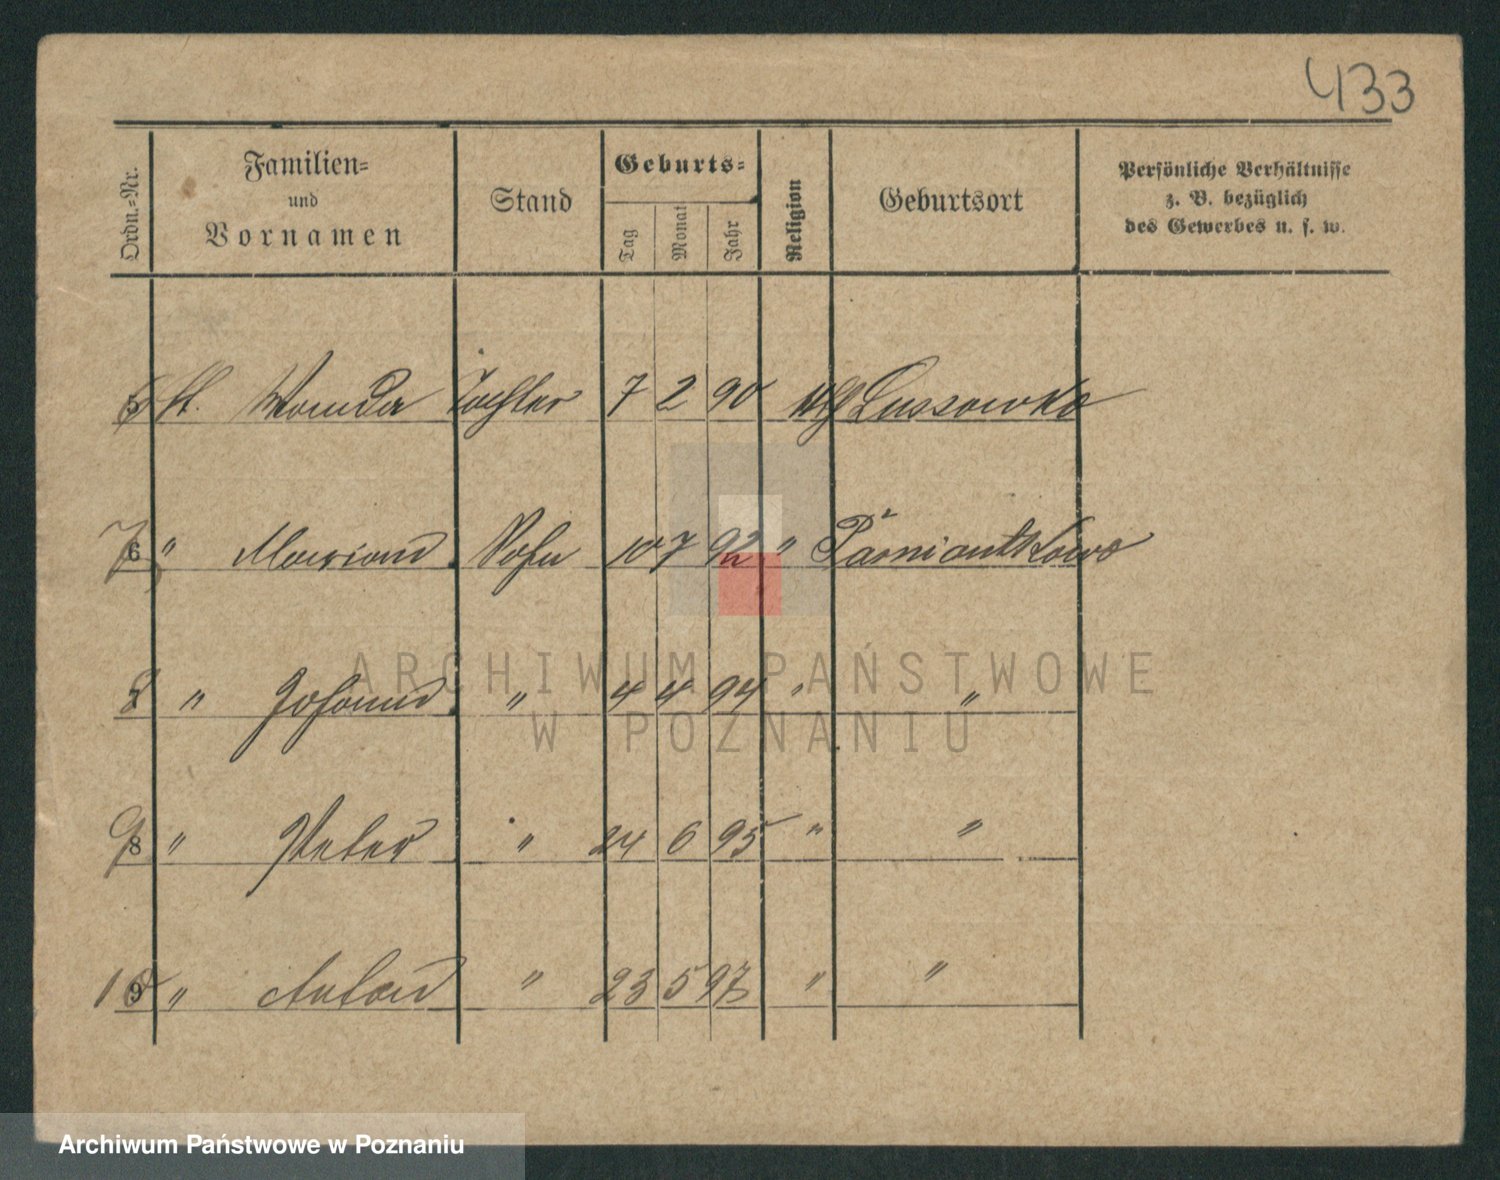 433
Ordn.-Nr.
Familien-
und
Vornamen
Stand
Geburts-
Tag
Monat
Jahr
Religion
Geburtsort
Persönliche Verhältnisse
z. B. bezüglich
des Gewerbes u. s. w.
Wanda Tochter 7 2 90 Lussowko
7 " Marian Sohn 10 7 92 " Pamiontkowo
8 " Johann " 4 4 94 " "
9 " Peter " 24 6 95 " "
10 " Anton " 23 5 97 " "
ARCHIWUM PAŃSTWOWE
W POZNANIU
Archiwum Państwowe w Poznaniu